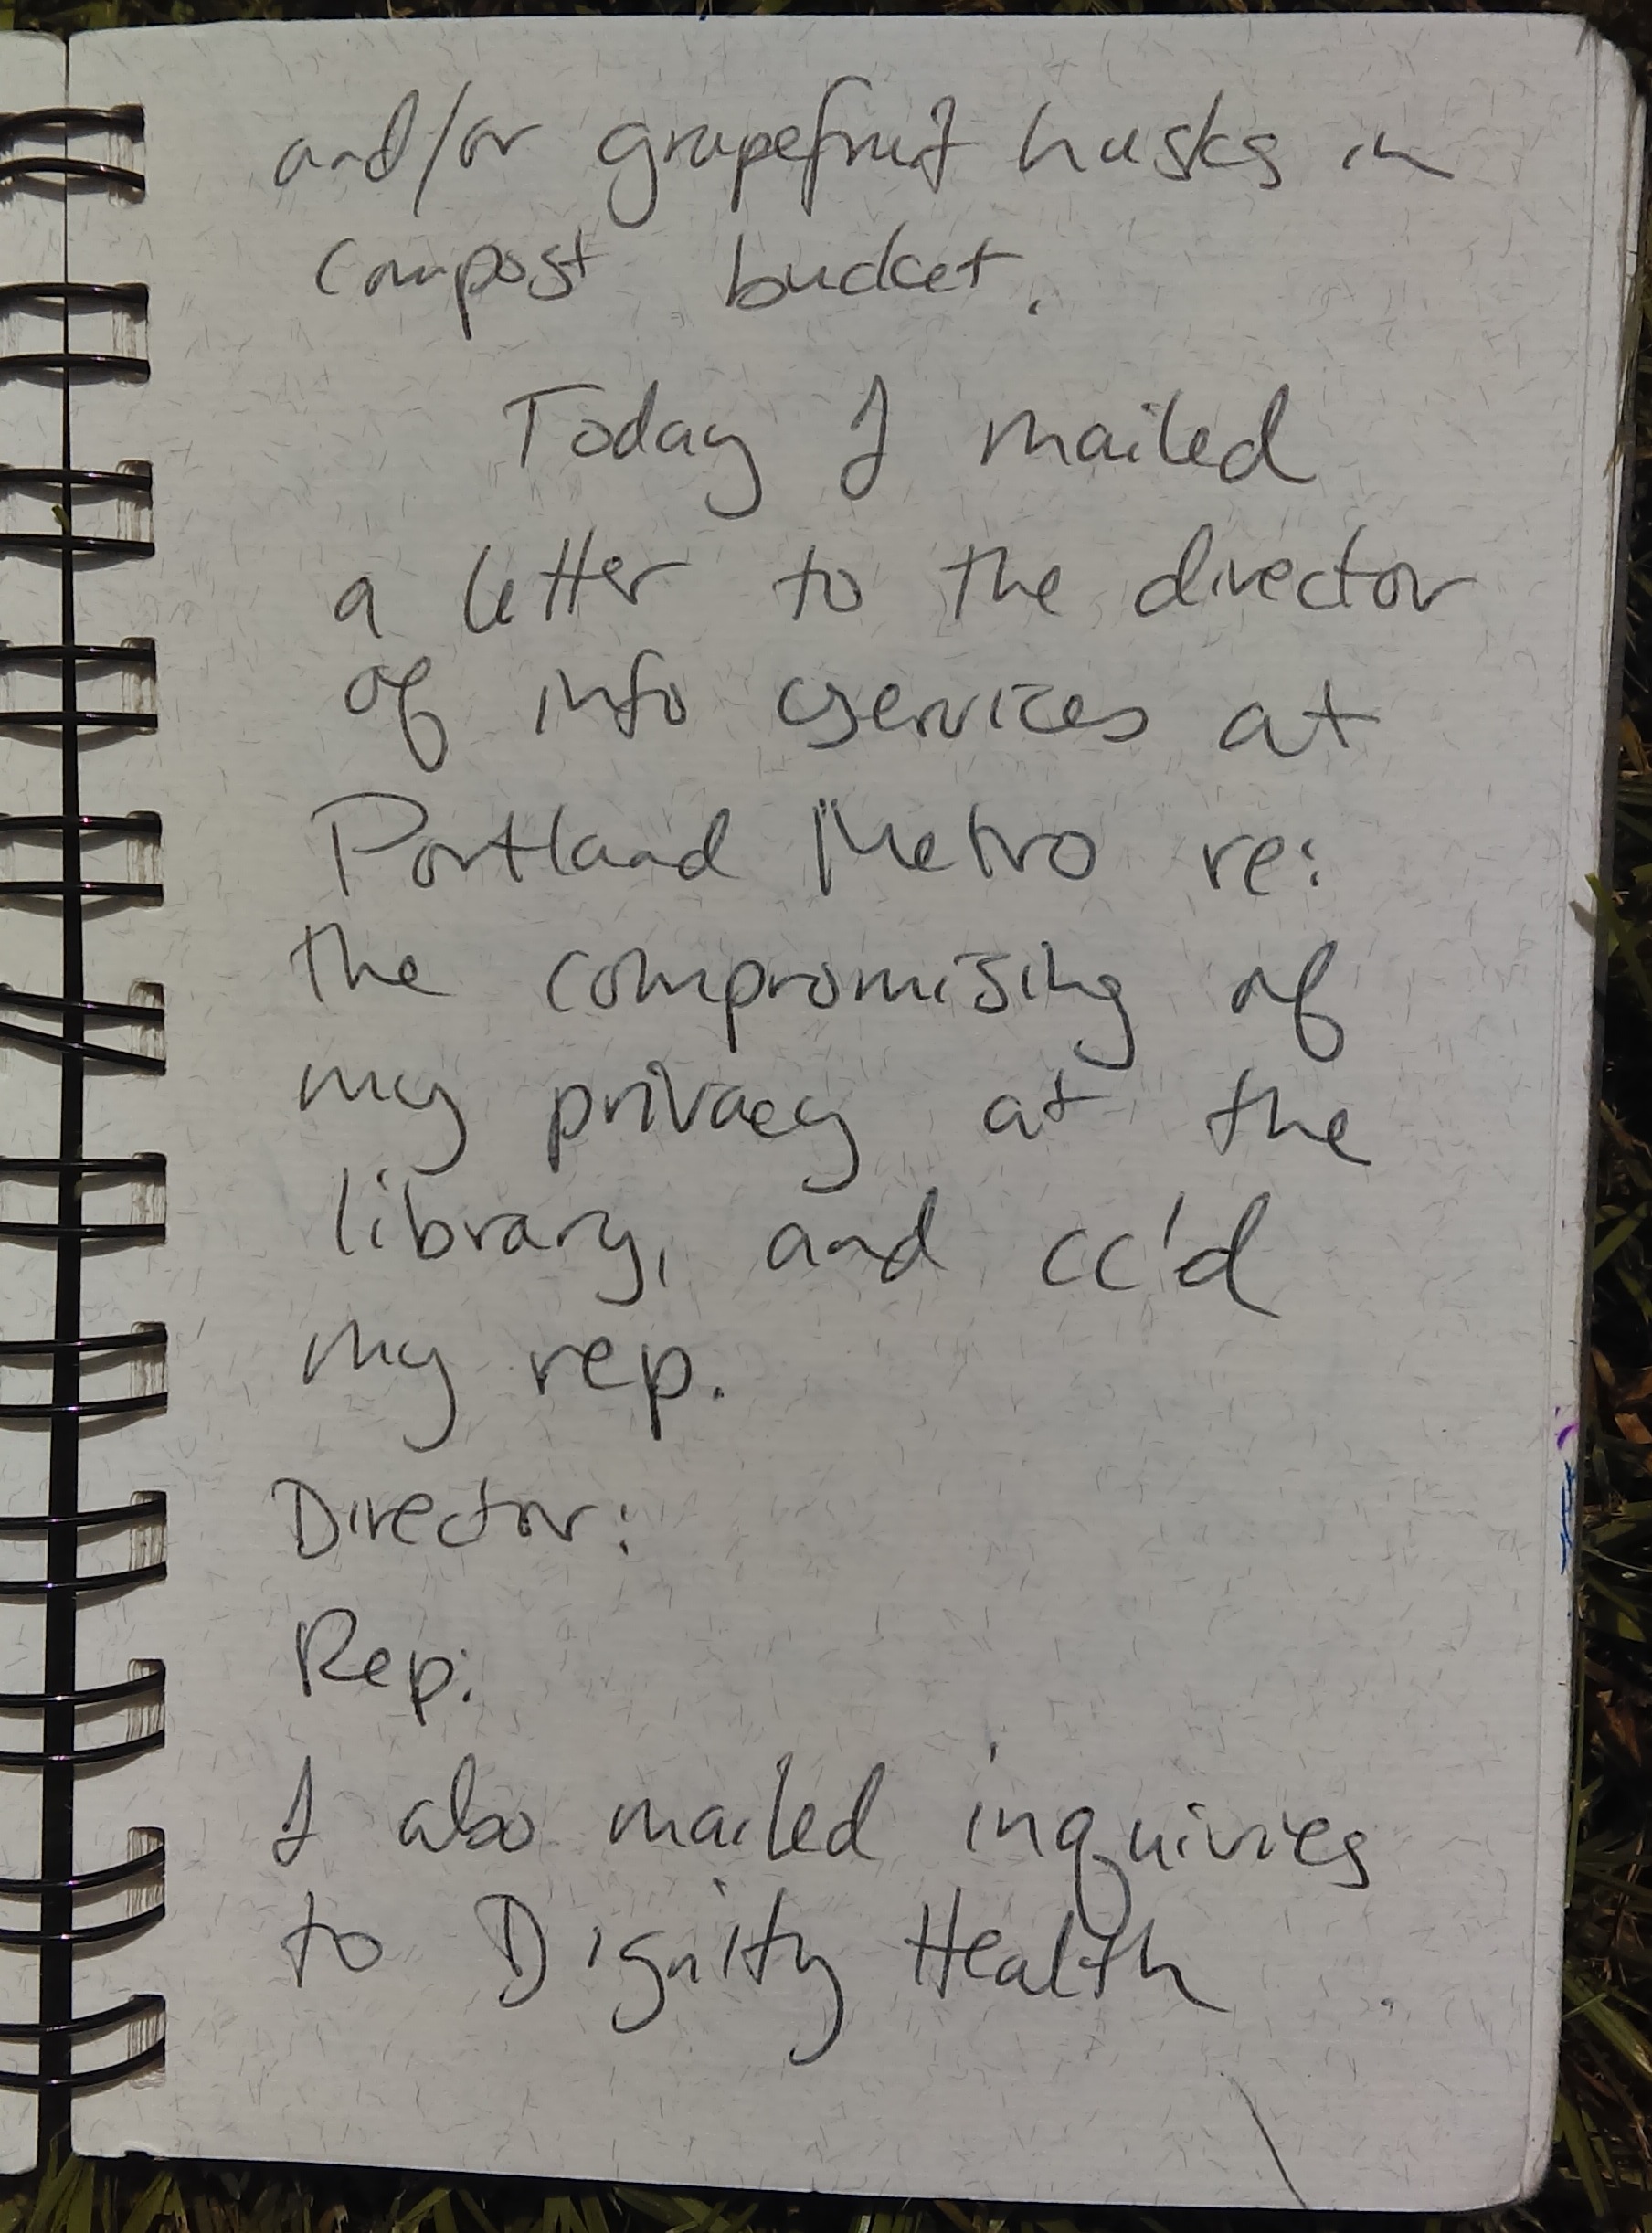 and/or grapefruit husks in
compost bucket.
Today I mailed
a letter to the director
of info services at
Portland Metro re:
the compromising of
my privacy at the
library, and cc'd
my rep.
Director:
Rep:
I also mailed inquiries
to Dignity Health